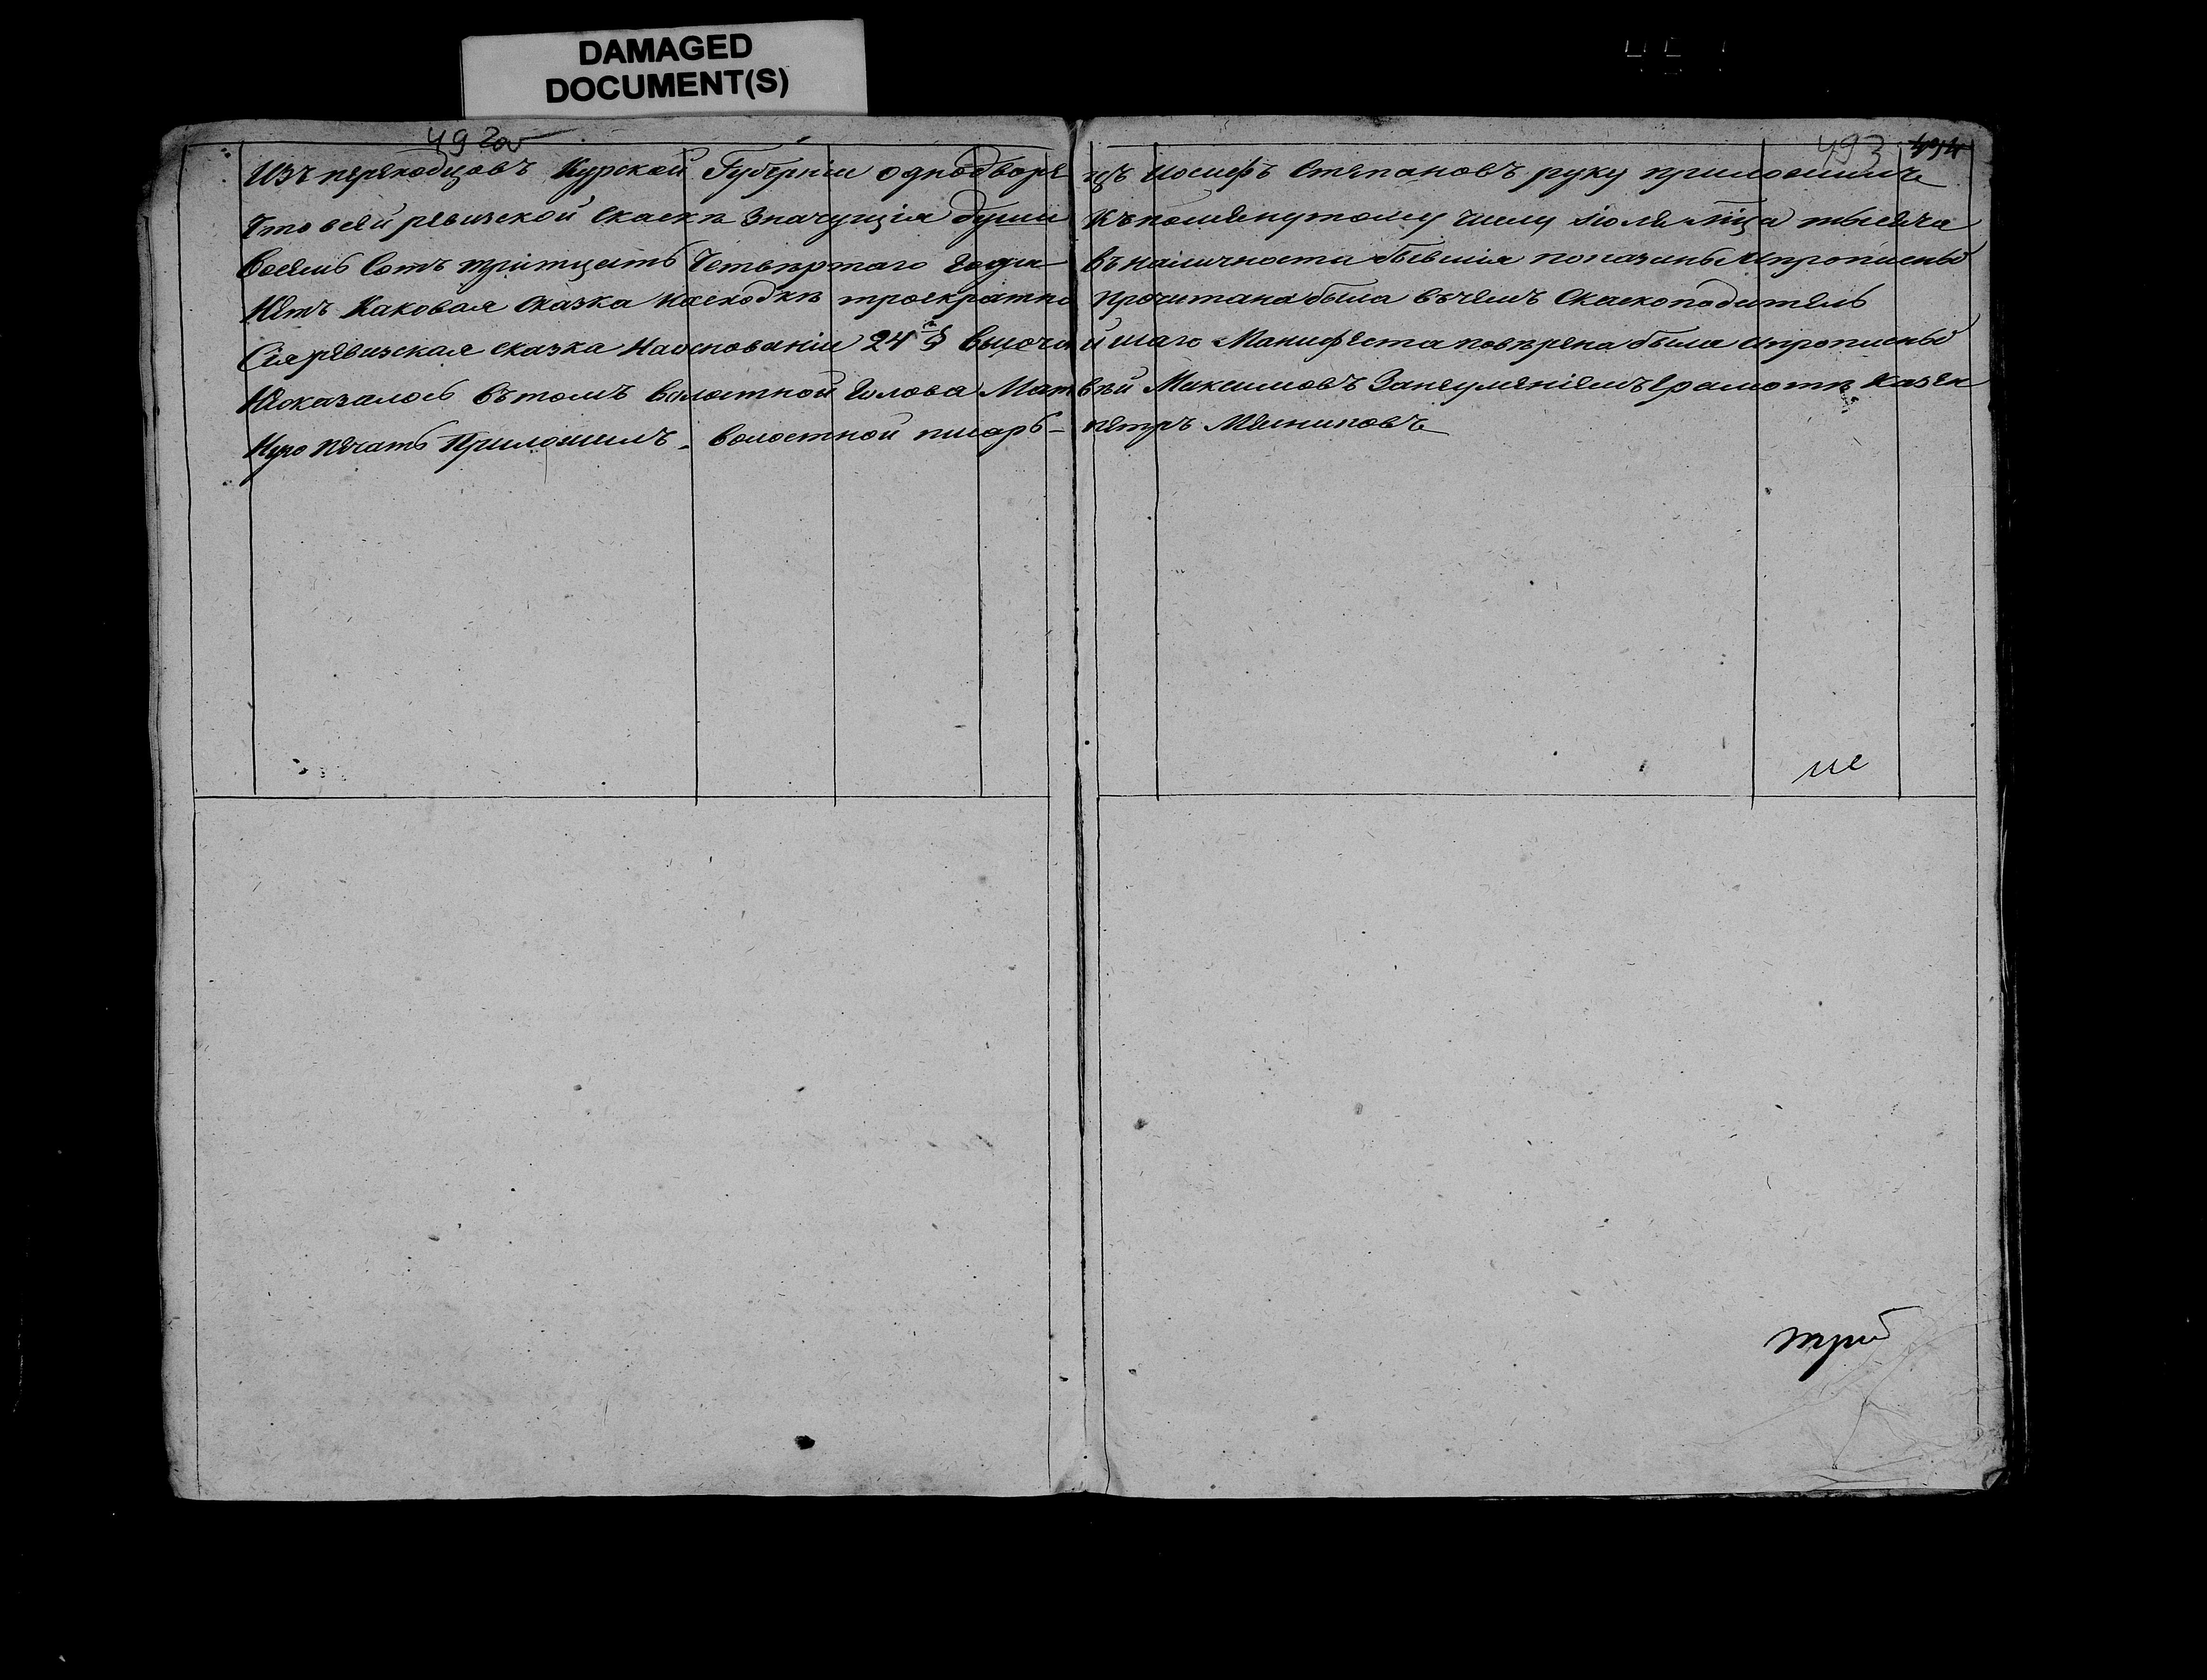 DAMAGED
DOCUMENT(S)
492об
493
494
Изъ переходцовъ Курской Губерніи однодворецъ Іосифъ Степановъ руку приложилъ
Что всей ревизской скаскѣ значущія души къ помянутому числу іюля мца тысяча
восемь сотъ тритцать четвертаго года въ наличности бывшія показаны и прописныхъ
нѣтъ каковая сказка насходкѣ троекратно прочитана была въ чемъ скаскоподатель
Сія ревизская сказка наоснованіи 24 § высочайшаго Манифеста повѣрена была и прописныхъ
неоказалось въ томъ волостной Голова Матвѣй Максимовъ занеуменіемъ грамотѣ казен
ную печать приложилъ. волостной писарь – петръ
три